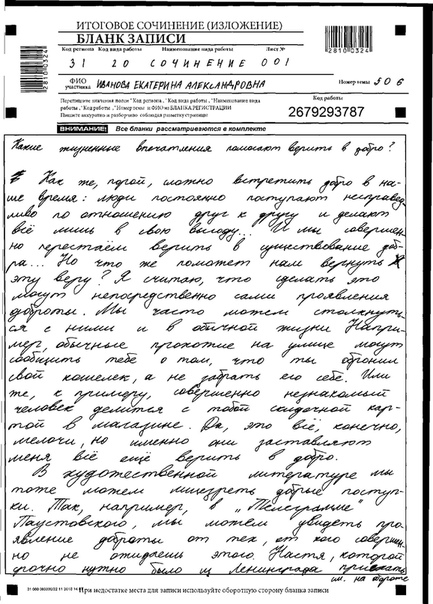 ИТОГОВОЕ СОЧИНЕНИЕ (ИЗЛОЖЕНИЕ)
БЛАНК ЗАПИСИ
Код региона Код вида работы Наименование вида работы Лист №
31 20 СОЧИНЕНИЕ 001
ФИО участника ИВАНОВА ЕКАТЕРИНА АЛЕКСАНДРОВНА Номер темы 506
Перепишите значения полей "Код региона", "Код вида работы", "Наименование вида
работы", "Код работы", "Номер темы" и "ФИО" из БЛАНКА РЕГИСТРАЦИИ
Пишите аккуратно и разборчиво соблюдая разметку страницы
Код работы
2679293787
ВНИМАНИЕ! Все бланки рассматриваются в комплекте
Какие жизненные впечатления помогают верить в добро?
Как же, порой, сложно встретить добро в на-
ше время: люди постоянно поступают несправед
ливо по отношению друг к другу и делают
всё лишь в свою выгоду... И мы совершен-
но перестаём верить в существование доб-
ра... Но что же поможет нам вернуть
эту веру? Я считаю, что сделать это
могут непосредственно сами проявления
доброты. Мы часто можем столкнуть
ся с ними и в обычной жизни. Напри-
мер, обычные прохожие на улице могут
сообщить тебе о том, что ты обронил
свой кошелек, а не забрать его себе. Или
же, к примеру, совершенно незнакомый
человек делится с тобой скидочной кар-
той в магазине. Да, это всё, конечно,
мелочи, но именно они заставляют
меня всё ещё верить в добро.
В художественной литературе мы
тоже можем добрые поступ-
ки. Так, например, в "Телеграмме"
Паустовского, мы можем увидеть про
явление доброты от тех, от кого соверш
но не ожидаешь этого. Настя, которой
срочно нужно было из Ленинграда приехать
см. на обороте
При недостатке места для записи используйте оборотную сторону бланка записи